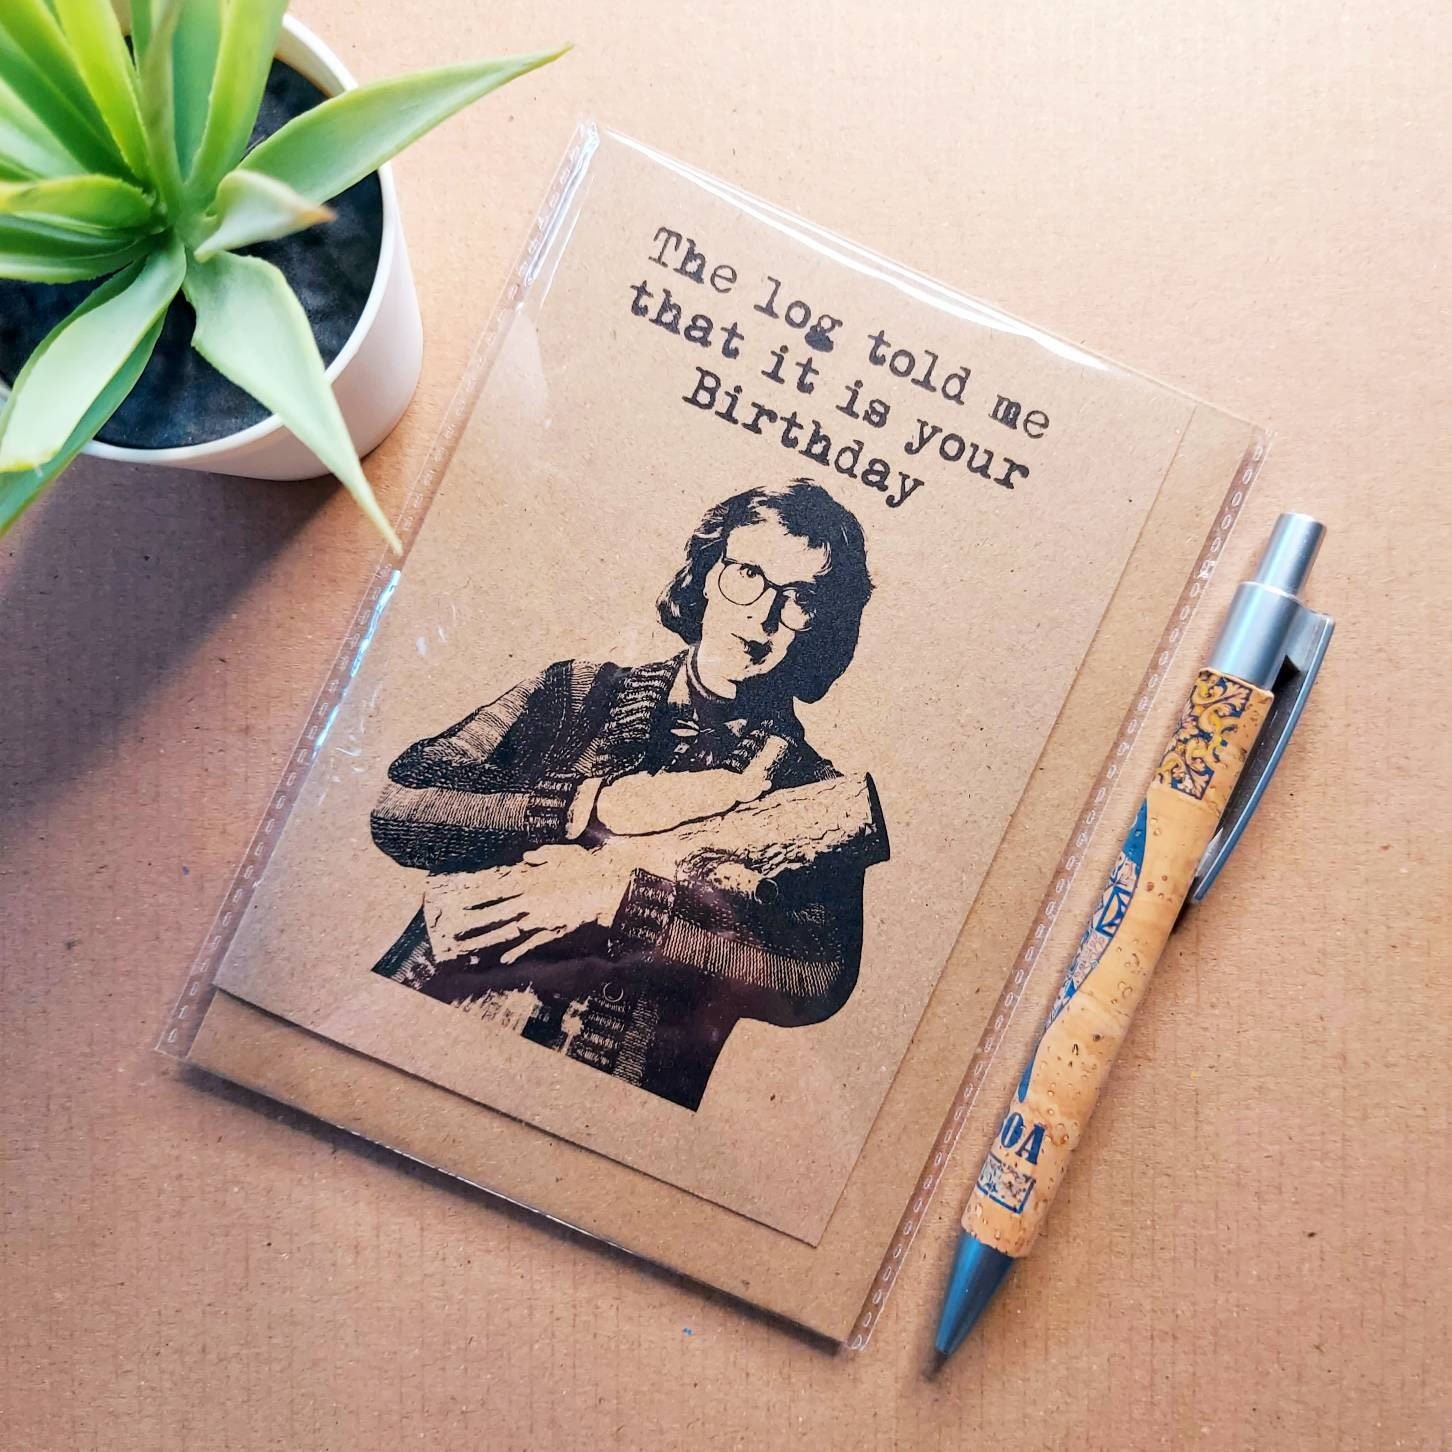 The log told me
that it is your
Birthday
OA